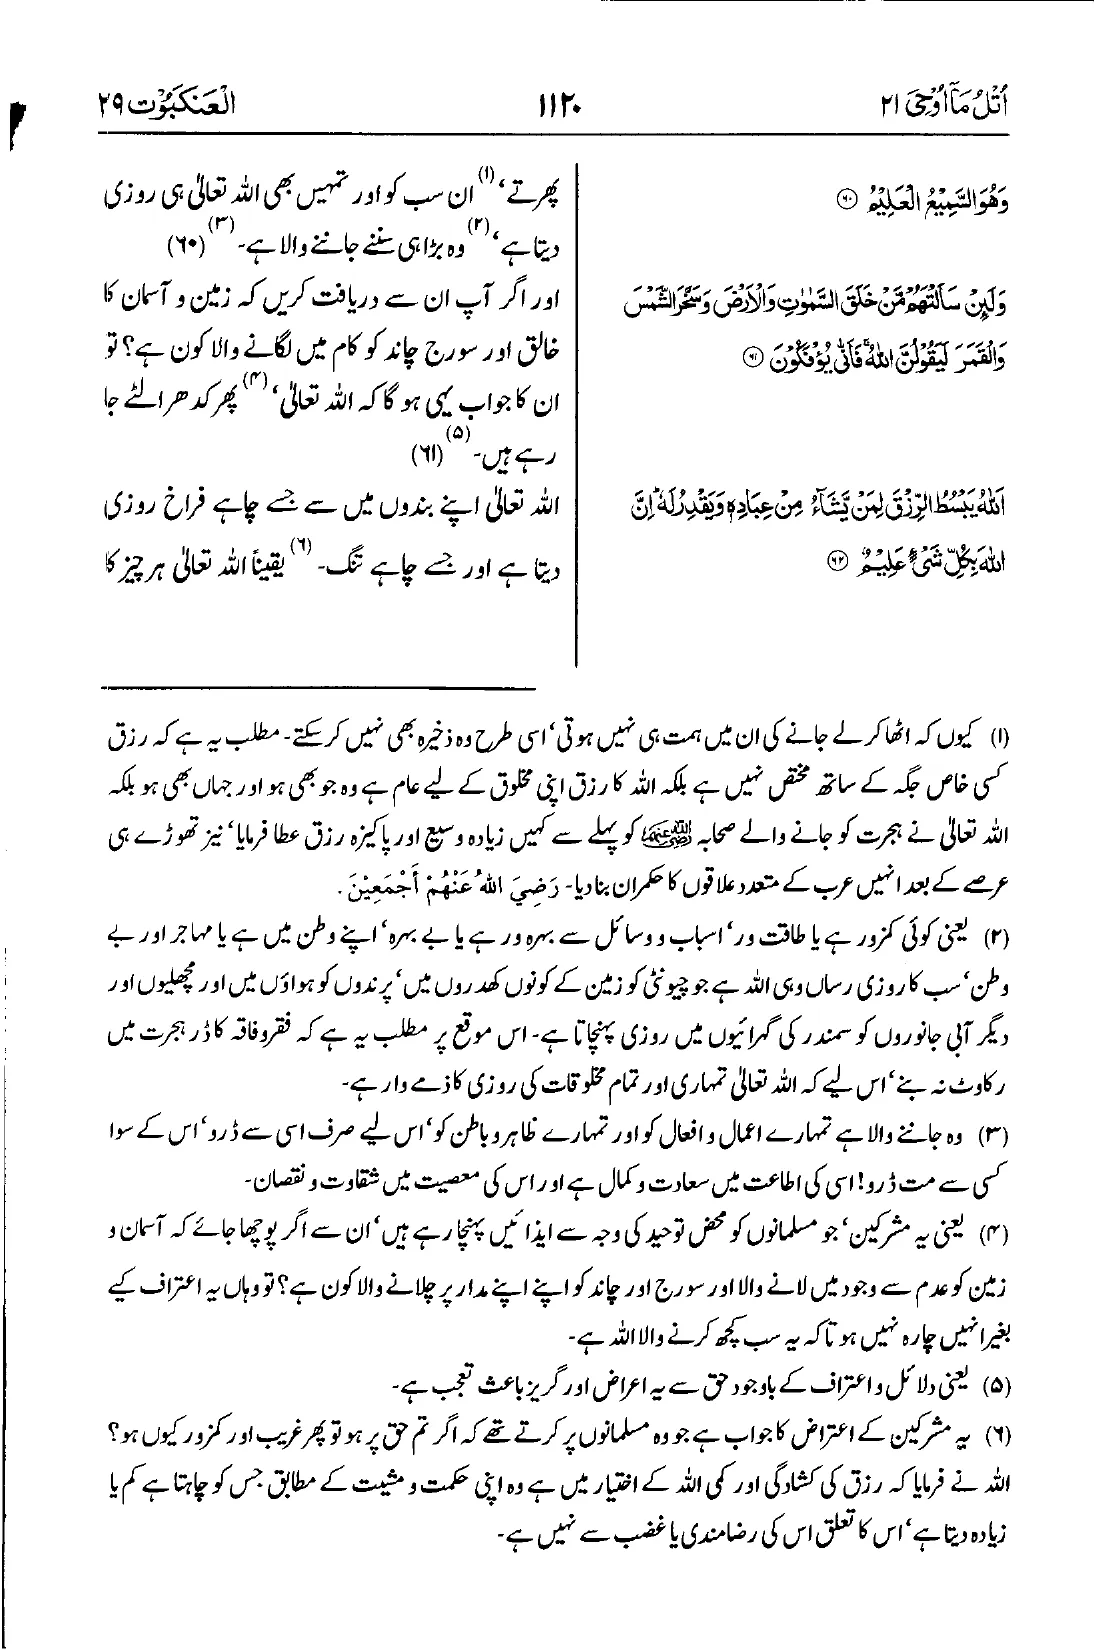 اُتْلُ مَآ اُوْحِیَ ۲۱
۱۱۲۰
الْعَنكَبُوْت ۲۹
وَهُوَ السَّمِيْعُ الْعَلِيْمُ ۝۶۰
وَلَئِنْ سَاَلْتَهُمْ مَّنْ خَلَقَ السَّمٰوٰتِ وَالْاَرْضَ وَسَخَّرَ الشَّمْسَ
وَالْقَمَرَ لَيَقُوْلُنَّ اللّٰهُ ۚ فَاَنّٰى يُؤْفَكُوْنَ ۝۶۱
اَللّٰهُ يَبْسُطُ الرِّزْقَ لِمَنْ يَّشَآءُ مِنْ عِبَادِهٖ وَيَقْدِرُ لَهٗ ؕ اِنَّ
اللّٰهَ بِكُلِّ شَیْءٍ عَلِيْمٌ ۝۶۲
پھرتے،(۱) ان سب کو اور تمہیں بھی اللہ تعالیٰ ہی روزی
دیتا ہے،(۲) وہ بڑا ہی سننے جاننے والا ہے۔(۳) (۶۰)
اور اگر آپ ان سے دریافت کریں کہ زمین و آسمان کا
خالق اور سورج چاند کو کام میں لگانے والا کون ہے؟ تو
ان کا جواب یہی ہو گا کہ اللہ تعالیٰ،(۴) پھر کدھر الٹے جا
رہے ہیں۔(۵) (۶۱)
اللہ تعالیٰ اپنے بندوں میں سے جسے چاہے فراخ روزی
دیتا ہے اور جسے چاہے تنگ۔(۶) یقیناً اللہ تعالیٰ ہر چیز کا
(۱) کیوں کہ اٹھا کر لے جانے کی ان میں ہمت ہی نہیں ہوتی، اسی طرح وہ ذخیرہ بھی نہیں کر سکتے۔ مطلب یہ ہے کہ رزق
کسی خاص جگہ کے ساتھ مختص نہیں ہے بلکہ اللہ کا رزق اپنی مخلوق کے لیے عام ہے وہ جو بھی ہو اور جہاں بھی ہو بلکہ
اللہ تعالیٰ نے ہجرت کو جانے والے صحابہ رضی اللہ عنہم کو پہلے سے کہیں زیادہ وسیع اور پاکیزہ رزق عطا فرمایا، نیز تھوڑے ہی
عرصے کے بعد انہیں عرب کے متعدد علاقوں کا حکمران بنا دیا۔ رَضِيَ اللهُ عَنْهُمْ أَجْمَعِيْنَ.
(۲) یعنی کوئی کمزور ہے یا طاقت ور، اسباب و وسائل سے بہرہ ور ہے یا بے بہرہ، اپنے وطن میں ہے یا مہاجر اور بے
وطن، سب کا روزی رساں وہی اللہ ہے جو چیونٹی کو زمین کے کونوں کھدروں میں، پرندوں کو ہواؤں میں اور مچھلیوں اور
دیگر آبی جانوروں کو سمندر کی گہرائیوں میں روزی پہنچاتا ہے۔ اس موقع پر مطلب یہ ہے کہ فقر و فاقہ کا ڈر ہجرت میں
رکاوٹ نہ بنے، اس لیے کہ اللہ تعالیٰ تمہاری اور تمام مخلوقات کی روزی کا ذمے دار ہے۔
(۳) وہ جاننے والا ہے تمہارے اعمال و افعال کو اور تمہارے ظاہر و باطن کو، اس لیے صرف اسی سے ڈرو، اس کے سوا
کسی سے مت ڈرو! اسی کی اطاعت میں سعادت و کمال ہے اور اس کی معصیت میں شقاوت و نقصان۔
(۴) یعنی یہ مشرکین، جو مسلمانوں کو محض توحید کی وجہ سے ایذائیں پہنچا رہے ہیں، ان سے اگر پوچھا جائے کہ آسمان و
زمین کو عدم سے وجود میں لانے والا اور سورج اور چاند کو اپنے اپنے مدار پر چلانے والا کون ہے؟ تو وہاں یہ اعتراف کیے
بغیر انہیں چارہ نہیں ہوتا کہ یہ سب کچھ کرنے والا اللہ ہے۔
(۵) یعنی دلائل و اعتراف کے باوجود حق سے یہ اعراض اور گریز باعث تعجب ہے۔
(۶) یہ مشرکین کے اعتراض کا جواب ہے جو وہ مسلمانوں پر کرتے تھے کہ اگر تم حق پر ہو تو پھر غریب اور کمزور کیوں ہو؟
اللہ نے فرمایا کہ رزق کی کشادگی اور کمی اللہ کے اختیار میں ہے وہ اپنی حکمت و مشیت کے مطابق جس کو چاہتا ہے کم یا
زیادہ دیتا ہے، اس کا تعلق اس کی رضامندی یا غضب سے نہیں ہے۔